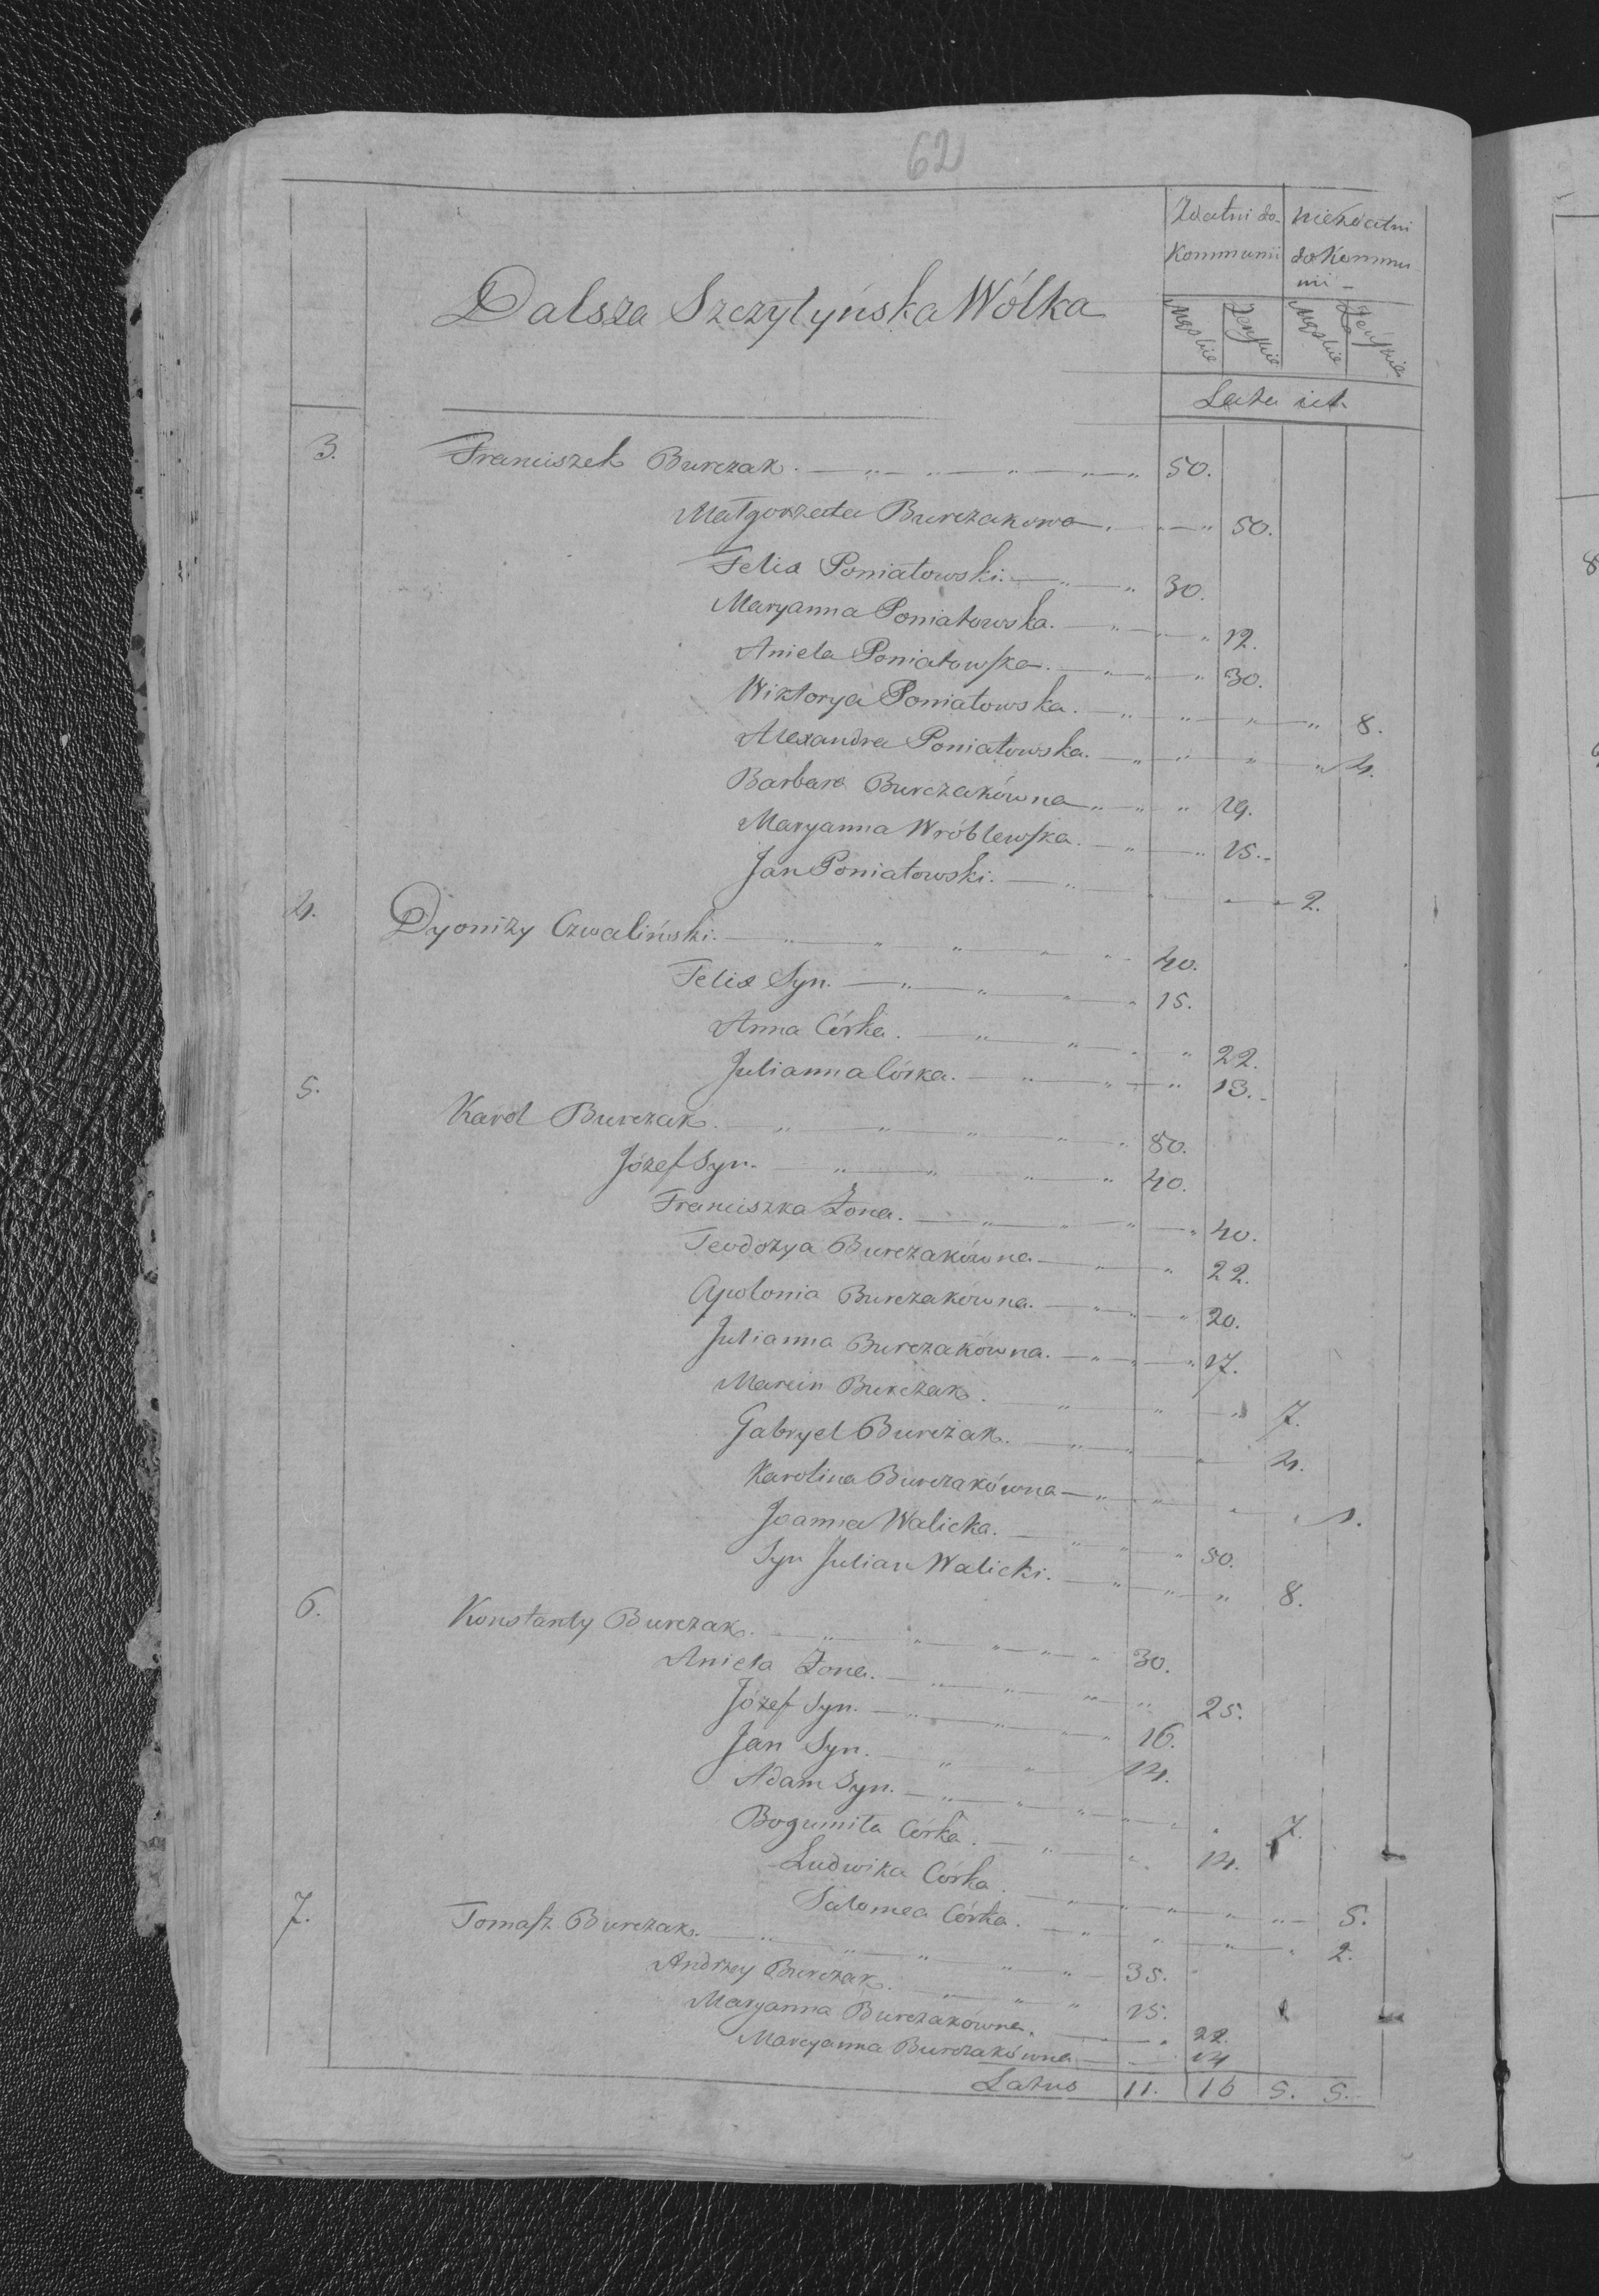 62
Zdatni do Kommunii
niezdatni do Kommunii
Dalsza Szczytyńska Wólka
Męskie Żeńskie Męskie Żeńskie
Lata ict
3. Franciszek Burczak. 50.
Małgorzata Burczakowa. 50.
Felix Poniatowski. 30.
Maryanna Poniatowska. 12.
Aniela Poniatowska. 30.
Wiktorya Poniatowska. 8.
Alexandra Poniatowska. 4.
Barbara Burczakówna 19.
Maryanna Wróblewska. 15.
Jan Poniatowski. 2.
4. Dyonizy Czwaliński. 40.
Felix Syn. 15.
Anna Córka. 22.
Julianna Córka. 13.
5. Karol Burczak. 80.
Józef Syn. 40.
Franciszka Żona. 40.
Teodozya Burczakówna 22.
Apolonia Burczakówna. 20.
Julianna Burczakówna. 17.
Marcin Burczak. 7.
Gabryel Burczak. 4.
Karolina Burczakówna 1.
Joanna Walicka. 50.
Syn Julian Walicki. 8.
6. Konstanty Burczak. 30.
Aniela Żona. 25.
Józef Syn. 16.
Jan Syn. 14.
Adam Syn. 7.
Bogumiła Córka. 14.
Ludwika Córka. 5.
Salomea Córka. 2.
7. Tomasz Burczak. 35.
Andrzey Burczak. 15.
Maryanna Burczakówna. 22.
Marcyanna Burczakówna 14
Latus 11. 16 5. 5.
8